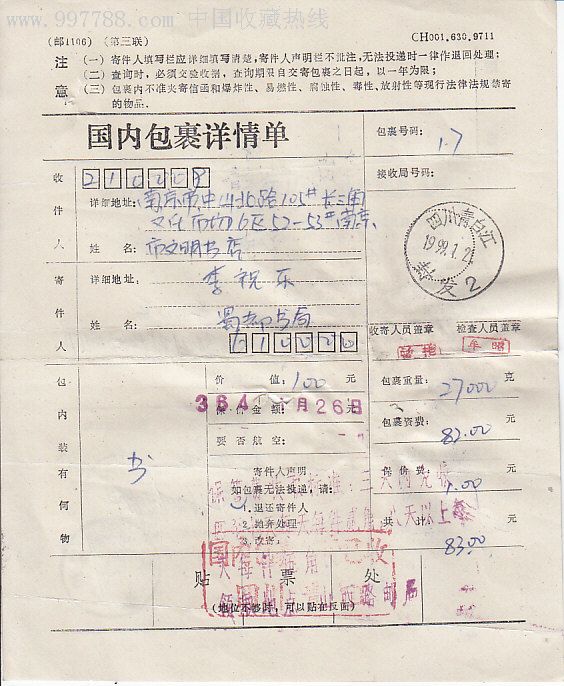 www.997788.com 中国收藏热线
(邮1106) (第三联)
CH001.630.9711
注意
(一) 寄件人填写栏应详细填写清楚,寄件人声明栏不批注,无法投递时一律作退回处理;
(二) 查询时,必须交验收据,查询期限自交寄包裹之日起,以一年为限;
(三) 包裹内不准夹寄信函和爆炸性、易燃性、腐蚀性、毒性、放射性等现行法律法规禁寄
的物品。
国内包裹详情单
包裹号码:
1.7
接收局号码:
收件人
210008
详细地址: 南京市中山北路105#长三角
文化市场6区52-53#南京
姓名: 市文明书店
四川青白江
1999.1.2
2
寄件人
详细地址:
李祝乐
姓名: 蜀都书局
610000
收寄人员盖章
检查人员盖章
包内装有何物
书
价值: 100 元
包裹重量: 27000 克
保价金额: 元
384
月26日
包裹资费: 82.00 元
要否航空:
寄件人声明
保价费: 1.00 元
如包裹无法投递,请:
1.退还寄件人
2.抛弃处理
3.改寄:
共计 83.00 元
国内
已收
贴票处
(地位不够时,可以贴在反面)